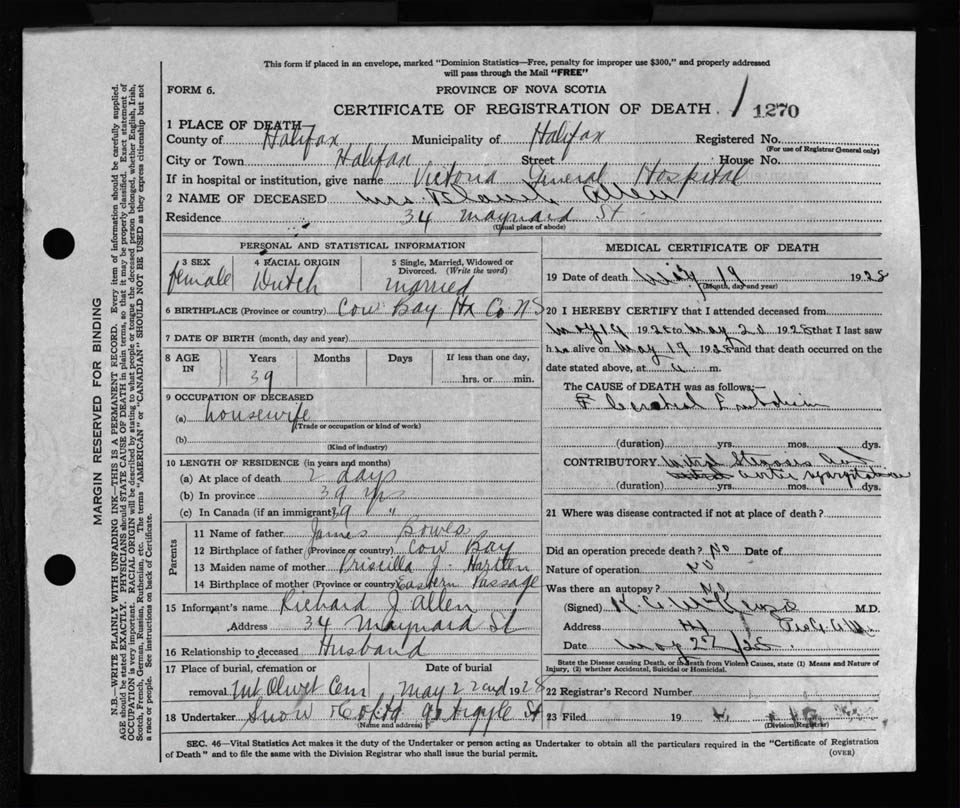 This form if placed in an envelope, marked "Dominion Statistics—Free, penalty for improper use $300," and properly addressed
will pass through the Mail "FREE"
FORM 6. PROVINCE OF NOVA SCOTIA
CERTIFICATE OF REGISTRATION OF DEATH. 1270
1 PLACE OF DEATH—
County of Halifax Municipality of Halifax Registered No.
(For use of Registrar General only)
City or Town Halifax Street House No.
If in hospital or institution, give name Victoria General Hospital
2 NAME OF DECEASED Mrs. Allen
Residence 34 Maynard St
(Usual place of abode)
PERSONAL AND STATISTICAL INFORMATION
3 SEX female
4 RACIAL ORIGIN Dutch
5 Single, Married, Widowed or Divorced. (Write the word) married
6 BIRTHPLACE (Province or country) Cow Bay Hx Co NS
7 DATE OF BIRTH (month, day and year)
8 AGE IN Years Months Days If less than one day,
39 hrs. or min.
9 OCCUPATION OF DECEASED
(a) housewife
(Trade or occupation or kind of work)
(b)
(Kind of industry)
10 LENGTH OF RESIDENCE (in years and months)
(a) At place of death 2 days
(b) In province 39 yrs
(c) In Canada (if an immigrant) 39 "
Parents
11 Name of father James Bowes
12 Birthplace of father (Province or country) Cow Bay
13 Maiden name of mother Priscilla J.
14 Birthplace of mother (Province or country) Eastern Passage
15 Informant's name Richard J. Allen
Address 34 Maynard St
16 Relationship to deceased Husband
17 Place of burial, cremation or removal Mt Olivet Cem Date of burial May 22nd 1928
18 Undertaker Snow & Co Ltd 90 Argyle St
(Name and address)
MEDICAL CERTIFICATE OF DEATH
19 Date of death May 19 1928
(Month, day and year)
20 I HEREBY CERTIFY that I attended deceased from
May 19 1928 to May 20 1928 that I last saw
her alive on May 19 1928 and that death occurred on the
date stated above, at m.
The CAUSE OF DEATH was as follows:—
Cerebral Embolism
(duration) yrs. mos. dys.
CONTRIBUTORY Mitral Stenosis and
aortic regurgitation
(duration) yrs. mos. dys.
21 Where was disease contracted if not at place of death?
Did an operation precede death? No Date of
Nature of operation No
Was there an autopsy? No
(Signed) M.D.
Address
Date May 22/28
State the Disease causing Death, or in death from Violent Causes, state (1) Means and Nature of
Injury, (2) whether Accidental, Suicidal or Homicidal.
22 Registrar's Record Number
23 Filed 19
(Division Registrar)
SEC. 46—Vital Statistics Act makes it the duty of the Undertaker or person acting as Undertaker to obtain all the particulars required in the "Certificate of Registration
of Death" and to file the same with the Division Registrar who shall issue the burial permit. (OVER)
MARGIN RESERVED FOR BINDING
N.B.—WRITE PLAINLY WITH UNFADING INK—THIS IS A PERMANENT RECORD. Every item of information should be carefully supplied.
AGE should be stated EXACTLY. PHYSICIANS should STATE CAUSE OF DEATH in plain terms, so that it may be properly classified. Exact statement of
OCCUPATION is very important. RACIAL ORIGIN will be described by stating to what people or tongue the deceased person belonged, whether English, Irish,
Scotch, French, German, Russian, Ruthenian, etc. The terms "AMERICAN" or "CANADIAN" SHOULD NOT BE USED as they express citizenship but not
a race or people. See instructions on back of Certificate.